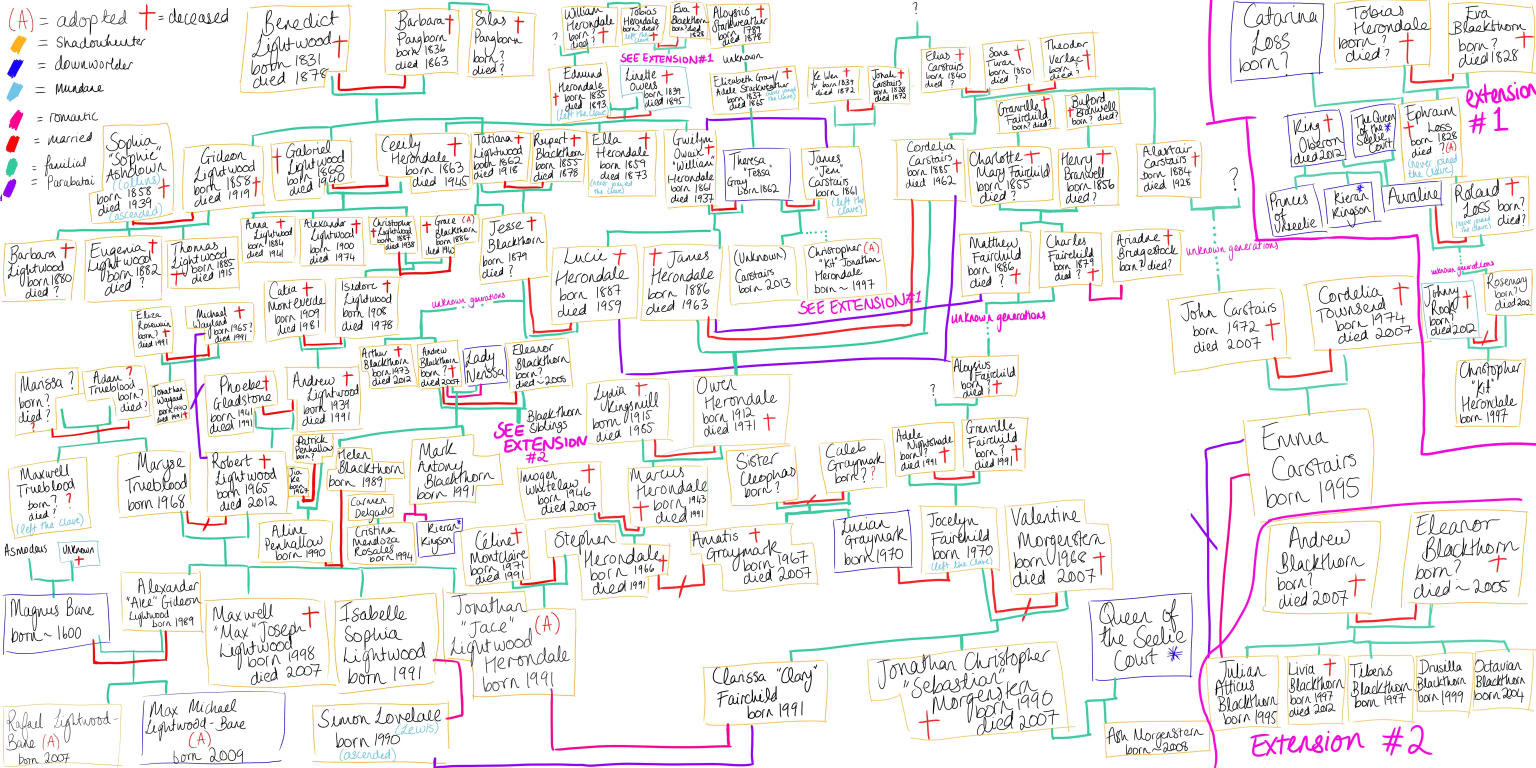 (A) = adopted † = deceased
= Shadowhunter
= downworlder
= Mundane
= romantic
= married
= familial
= Parabatai
Benedict
Lightwood
born 1831
died 1878
Barbara
Pangborn
born 1836
died 1863
Silas
Pangborn
born?
died?
William
Herondale
born?
died?
Tobias
Herondale
born? died?
left the clave
Eva
Blackthorn
born?
died 1828
Aloysius
Starkweather
born 1787
died 1878
SEE EXTENSION #1
unknown
?
?
Edmund
Herondale
born 1835
died 1893
(left the clave)
Linette
Owens
born 1839
died 1895
Elizabeth Gray/
Adele Starkweather
born 1837
died 1865
Ke Wen
Yu born 1839
died 1872
Jonah
Carstairs
born 1838
died 1872
Elias
Carstairs
born 1840
died ?
Sona
Turan
born 1850
died ?
Theodor
Verlac
born? died?
Granville
Fairchild
born? died?
Buford
Branwell
born? died?
Sophia
"Sophie"
Ashdown
(Collins)
1858
died 1939
(ascended)
Gideon
Lightwood
born 1858
died 1919
Gabriel
Lightwood
born 1860
died 1940
Cecily
Herondale
born 1863
died 1945
Tatiana
Lightwood
born 1862
died 1918
Rupert
Blackthorn
born 1855
died 1878
Ella
Herondale
born 1859
died 1873
(never joined the clave)
Gwilym
Owain
"William"
Herondale
born 1861
died 1937
Theresa
"Tessa"
Gray born 1862
James
"Jem"
Carstairs
born 1861
(left the
clave)
Cordelia
Carstairs
born 1885
died 1962
Charlotte
Mary Fairchild
born 1855
died ?
Henry
Branwell
born 1856
died?
Alastair
Carstairs
born 1884
died 1928
?
unknown generations
Barbara
Lightwood
born 1880
died ?
Eugenia
Lightwood
born 1882
died ?
Thomas
Lightwood
born 1885
died 1915
Anna
Lightwood
born 1884
died 1941
Alexander
Lightwood
born 1900
died 1974
Christopher
Lightwood
born 1887
died 1938
Grace (A)
Blackthorn
born 1886
Jesse
Blackthorn
born 1879
died ?
unknown generations
Lucie
Herondale
born 1887
died 1959
James
Herondale
born 1886
died 1963
(Unknown)
Carstairs
born 2013
Christopher (A)
"Kit" Jonathan
Herondale
born ~ 1997
SEE EXTENSION #1
Matthew
Fairchild
born 1886
died ?
Charles
Fairchild
born 1879
died ?
Ariadne
Bridgestock
born? died?
unknown generations
John Carstairs
born 1972
died 2007
Cordelia
Townsend
born 1974
died 2007
Eliza
Rosewain
born ?
died 1991
Michael
Wayland
born 1965?
died 1991
Catia
Monteverde
born 1909
died 1981
Isidore
Lightwood
born 1908
died 1978
Arthur
Blackthorn
born 1973
died 2012
Andrew
Blackthorn
born ?
died 2007
Lady
Nerissa
Eleanor
Blackthorn
born ?
died ~ 2005
Aloysius
Fairchild
born ?
died ?
?
Marissa ?
born?
died?
?
Adam ?
Trueblood
born?
died?
Jonathan
Wayland
born 1990
died 1991
Phoebe
Gladstone
born 1941
died 1991
Andrew
Lightwood
born 1939
died 1991
Blackthorn
Siblings
SEE
EXTENSION
#2
Lydia
Kingsmill
born 1915
died 1965
Owen
Herondale
born 1912
died 1971
Adele
Nightshade
born ?
died 1991
Granville
Fairchild
born ?
died 1991
Maxwell
Trueblood
born ?
died? ?
(left the clave)
Maryse
Trueblood
born 1968
Robert
Lightwood
born 1965
died 2012
Patrick
Penhallow
born?
Jia
Ke
born
1967
Helen
Blackthorn
born 1989
Mark
Antony
Blackthorn
born 1991
Imogen
Whitelaw
born 1946
died 2007
Marcus
Herondale
born 1943
died 1991
Sister
Cleophas
born ?
Caleb
Graymark
born? ?
Aline
Penhallow
born 1990
Carmen
Delgado
Cristina
Mendoza
Rosales
born 1994
Kieran *
Kingson
Céline
Montclaire
born 1971
died 1991
Stephen
Herondale
born 1966
died 1991
Amatis
Graymark
born 1967
died 2007
Lucian
Graymark
born 1970
Jocelyn
Fairchild
born 1970
(left the clave)
Valentine
Morgenstern
born 1968
died 2007
Asmodeus
unknown
Magnus Bane
born ~ 1600
Alexander
"Alec" Gideon
Lightwood
born 1989
Maxwell
"Max" Joseph
Lightwood
born 1998
died 2007
Isabelle
Sophia
Lightwood
born 1991
Jonathan
"Jace" (A)
Lightwood
Herondale
born 1991
Queen of
the Seelie
Court *
Rafael Lightwood-
Bane (A)
born 2007
Max Michael
Lightwood-Bane
(A)
born 2009
Simon Lovelace
(Lewis)
born 1990
(ascended)
Clarissa "Clary"
Fairchild
born 1991
Jonathan Christopher
"Sebastian"
Morgenstern
born 1990
died 2007
Ash Morgenstern
born ~ 2008
Catarina
Loss
born?
Tobias
Herondale
born ?
died?
Eva
Blackthorn
born?
died 1828
extension
#1
King
Oberon
died 2012
The Queen
of the *
Seelie
Court
Ephraim
Loss
born 1828
died ? (A)
(never joined
the clave)
Princes
of
Unseelie
Kieran *
Kingson
Auraline
Roland
Loss
born?
died?
unknown generations
Johnny
Rook
born?
died 2012
Rosemary
born?
Christopher
"Kit"
Herondale
born 1997
Emma
Carstairs
born 1995
Andrew
Blackthorn
born?
died 2007
Eleanor
Blackthorn
born ?
died ~ 2005
Julian
Atticus
Blackthorn
born 1995
Livia
Blackthorn
born 1997
died 2012
Tiberius
Blackthorn
born 1997
Drusilla
Blackthorn
born 1999
Octavian
Blackthorn
born 2004
Extension #2